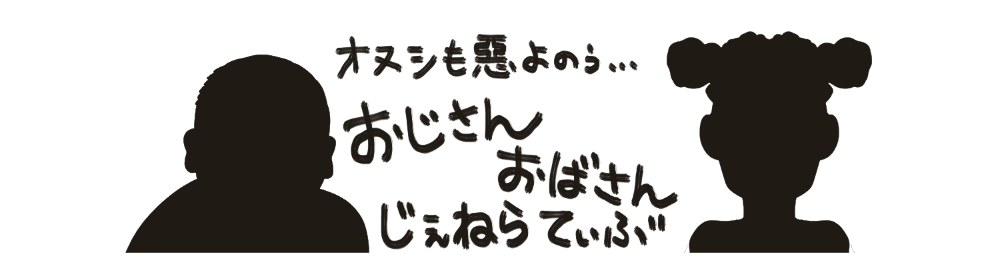 オヌシも悪よのぅ…
おじさん
おばさん
じぇねらてぃぶ